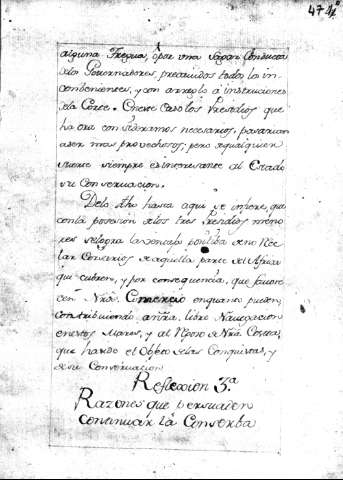 47
alguna Tregua, ô por una Segura Conducta
delos Governadores, precavidos todos los in-
combenientes, y con arreglo â instrucciones
dela Corte. Eneste Caso los Presidios que
haora consideramos necesarios, pasarian
aser mas provechosos; pero aqualquier
suerte siempre es interesante al Estado
su Conservacion.
Delo dho hasta aqui se infiere, que
conla posesion delos tres Presidios meno
res selogra la bentaja positiba deno Rece
lar Corsarios de aquella parte del Africa
que cubren, y por consequencia, que favore
cen Nrô. Comercio enquanto pueden,
contribuiendo alâ libre Navegacion
enestos Mares, y al Reposo de Nrâ Costa,
que hasido el Objeto delas Conquistas, y
desu Conservacion
Reflexion 3.ª
Razones que persuaden
continuar la Conserba